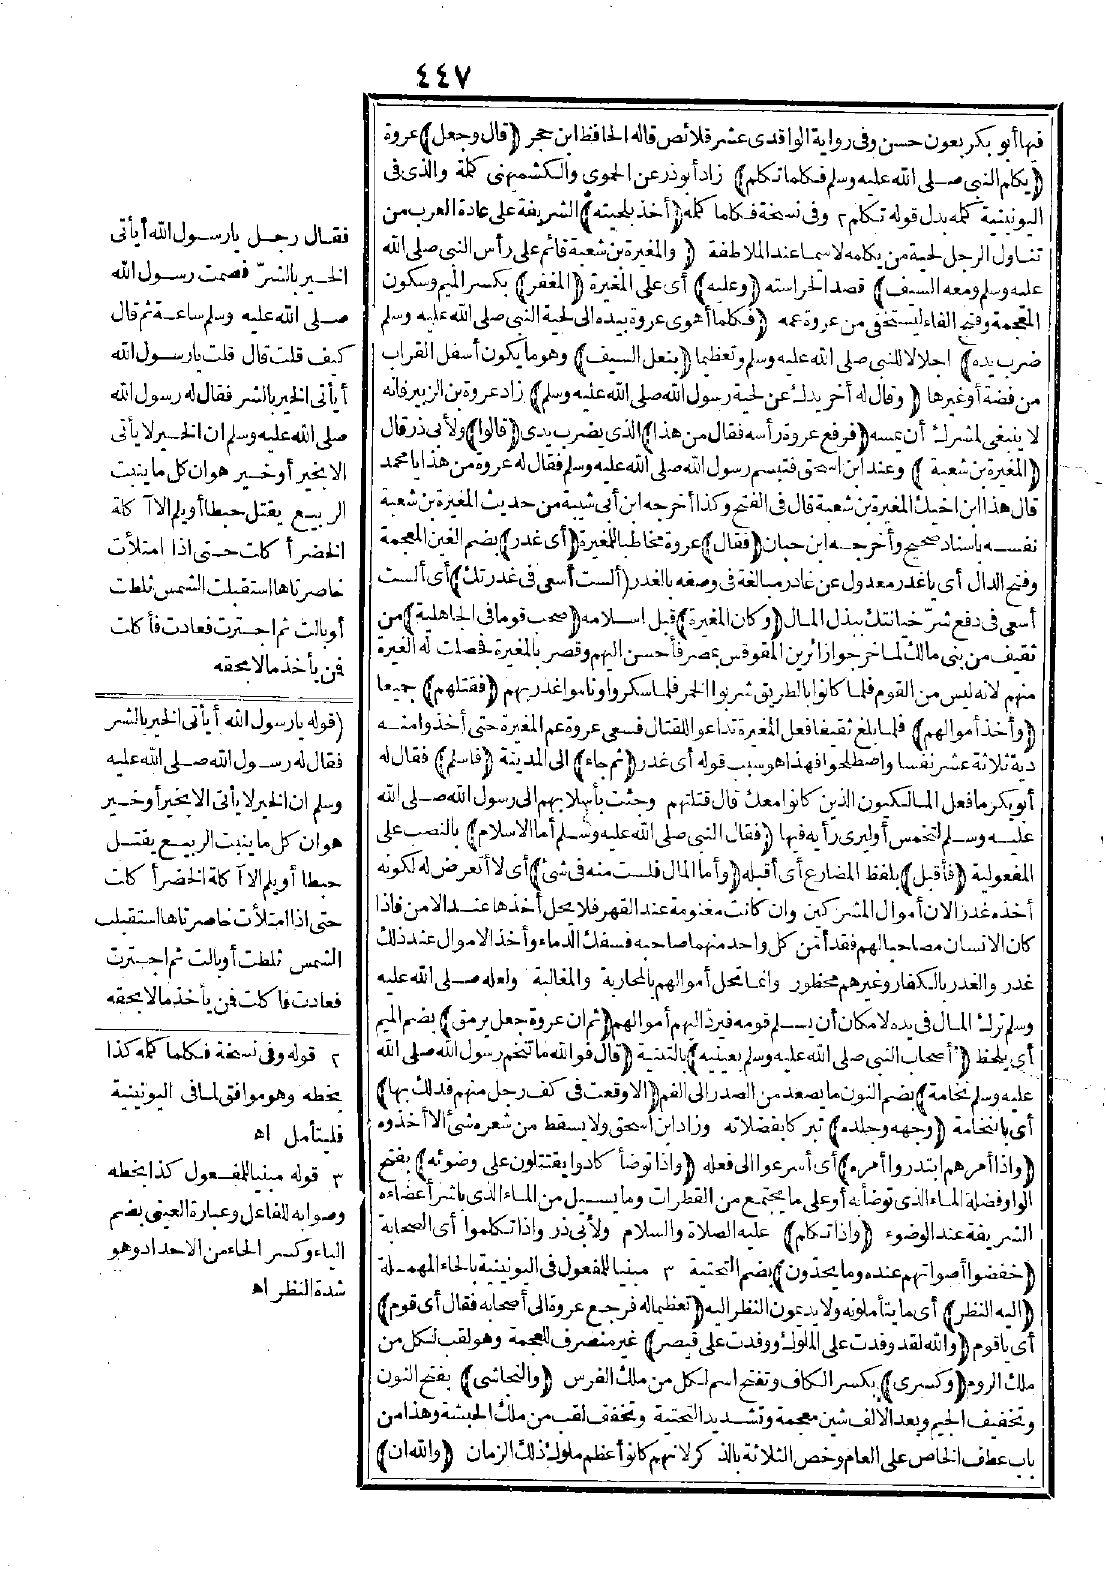 ٤٤٧
فيها أبو بكر بعون حسن وفى رواية الواقدى عشر قلائص قاله الحافظ ابن حجر ﴿قال وجعل﴾ عروة
﴿يكلم النبى صلى الله عليه وسلم فكلما تكلم﴾ زاد أبو ذر عن الحموى والكشميهنى كلمة والذى فى
اليونينية كلمه بدل قوله تكلم ٢ وفى نسخة فكلما كلمه ﴿أخذ بلحيته﴾ الشريفة على عادة العرب من
تناول الرجل لحية من يكلمه لاسيما عند الملاطفة ﴿والمغيرة بن شعبة قائم على رأس النبى صلى الله
عليه وسلم ومعه السيف﴾ قصد الحراسته ﴿وعليه﴾ أى على المغيرة ﴿المغفر﴾ بكسر الميم وسكون
المعجمة وفتح الفاء ليستخفى من عروة عمه ﴿فكلما أهوى عروة بيده الى لحية النبى صلى الله عليه وسلم
ضرب يده﴾ اجلالا للنبى صلى الله عليه وسلم وتعظيما ﴿بنعل السيف﴾ وهو ما يكون أسفل القراب
من فضة أو غيرها ﴿وقال له أخر يدك عن لحية رسول الله صلى الله عليه وسلم﴾ زاد عروة بن الزبير فانه
لا ينبغى لمشرك أن يمسه ﴿فرفع عروة رأسه فقال من هذا﴾ الذى يضرب يدى ﴿قالوا﴾ ولأبى ذر قال
﴿المغيرة بن شعبة﴾ وعند ابن اسحق فتبسم رسول الله صلى الله عليه وسلم فقال له عروة من هذا يا محمد
قال هذا ابن اخيك المغيرة بن شعبة قال فى الفتح وكذا أخرجه ابن أبى شيبة من حديث المغيرة بن شعبة
نفسه باسناد صحيح وأخرجه ابن حبان ﴿فقال﴾ عروة مخاطبا للمغيرة ﴿أى غدر﴾ بضم الغين المعجمة
وفتح الدال أى يا غدر معدول عن غادر مبالغة فى وصفه بالغدر ﴿ألست أسعى فى غدرتك﴾ أى ألست
أسعى فى دفع شرّ خيانتك ببذل المال ﴿وكان المغيرة﴾ قبل اسلامه ﴿صحب قوما فى الجاهلية﴾ من
ثقيف من بنى مالك لما خرجوا زائرين المقوقس بمصر فأحسن اليهم وقصر بالمغيرة فحصلت له الغيرة
منهم لانه ليس من القوم فلما كانوا بالطريق شربوا الخمر فلما سكروا وناموا غدر بهم ﴿فقتلهم﴾ جميعا
﴿وأخذ أموالهم﴾ فلما بلغ ثقيفا فعل المغيرة تداعوا للقتال فسعى عروة عم المغيرة حتى أخذوا منه
دية ثلاثة عشر نفسا واصطلحوا فهذا هو سبب قوله أى غدر ﴿ثم جاء﴾ الى المدينة ﴿فاسلم﴾ فقال له
أبو بكر ما فعل المالكيون الذين كانوا معك قال قتلتهم وجئت بأسلابهم الى رسول الله صلى الله
عليه وسلم لتخمس أو ليرى رأيه فيها ﴿فقال النبى صلى الله عليه وسلم أما الاسلام﴾ بالنصب على
المفعولية ﴿فأقبل﴾ بلفظ المضارع أى أقبله ﴿وأما المال فلست منه فى شئ﴾ أى لا أتعرض له لكونه
أخذه غدرا لان أموال المشركين وان كانت مغنومة عند القهر فلا يحل أخذها عند الامن فاذا
كان الانسان مصاحبا لهم فقد أمّن كل واحد منهما صاحبه فسفك الدماء وأخذ الاموال عند ذلك
غدر والغدر بالكفار وغيرهم محظور وانما تحل أموالهم بالمحاربة والمغالبة ولعله صلى الله عليه
وسلم ترك المال فى يده لامكان أن يسلم قومه فيرد اليهم أموالهم ﴿ثم ان عروة جعل يرمق﴾ بضم الميم
أى يلحظ ﴿أصحاب النبى صلى الله عليه وسلم بعينيه﴾ بالتثنية ﴿قال فوالله ما تنخم رسول الله صلى الله
عليه وسلم نخامة﴾ بضم النون ما يصعد من الصدر الى الفم ﴿الا وقعت فى كف رجل منهم فدلك بها﴾
أى بالنخامة ﴿وجهه وجلده﴾ تبركا بفضلاته وزاد ابن اسحق ولا يسقط من شعره شئ الا أخذوه
﴿واذا أمرهم ابتدروا أمره﴾ أى أسرعوا الى فعله ﴿واذا توضأ كادوا يقتتلون على وضوئه﴾ بفتح
الواو فضلة الماء الذى توضأ به أو على ما يجتمع من القطرات وما يسيل من الماء الذى باشر أعضاءه
الشريفة عند الوضوء ﴿واذا تكلم﴾ عليه الصلاة والسلام ولأبى ذر واذا تكلموا أى الصحابة
﴿خفضوا أصواتهم عنده وما يحدون﴾ بضم التحتية ٣ مبنيا للمفعول فى اليونينية بالحاء المهملة
﴿اليه النظر﴾ أى ما يتأملونه ولا يديمون النظر اليه ﴿تعظيما له فرجع عروة الى أصحابه فقال أى قوم﴾
أى يا قوم ﴿والله لقد وفدت على الملوك ووفدت على قيصر﴾ غير منصرف للعجمة وهو لقب لكل من
ملك الروم ﴿وكسرى﴾ بكسر الكاف وتفتح اسم لكل من ملك الفرس ﴿والنجاشى﴾ بفتح النون
وتخفيف الجيم وبعد الألف شين معجمة وتشديد التحتية وتخفف لقب من ملك الحبشة وهذا من
باب عطف الخاص على العام وخص الثلاثة بالذكر لانهم كانوا أعظم ملوك ذلك الزمان ﴿والله ان﴾
فقال رجل يا رسول الله أيأتى
الخير بالشرّ فصمت رسول الله
صلى الله عليه وسلم ساعة ثم قال
كيف قلت قال قلت يا رسول الله
أيأتى الخير بالشر فقال له رسول الله
صلى الله عليه وسلم ان الخير لا يأتى
الا بخير أو خير هو ان كل ما ينبت
الربيع يقتل حبطا أو يلم الا آكلة
الخضر أكلت حتى اذا امتلأت
خاصرتاها استقبلت الشمس ثلطت
أو بالت ثم اجترت فعادت فأكلت
فمن يأخذ مالا بحقه
(قوله يا رسول الله أيأتى الخير بالشر
فقال له رسول الله صلى الله عليه
وسلم ان الخير لا يأتى الا بخير أو خير
هو ان كل ما ينبت الربيع يقتل
حبطا أو يلم الا آكلة الخضر أكلت
حتى اذا امتلأت خاصرتاها استقبلت
الشمس ثلطت أو بالت ثم اجترت
فعادت فاكلت فمن يأخذ مالا بحقه
٢ قوله وفى نسخة فكلما كلمه كذا
بخطه وهو موافق لما فى اليونينية
فليتأمل اه
٣ قوله مبنيا للمفعول كذا بخطه
وصوابه للفاعل وعبارة العينى بضم
الياء وكسر الحاء من الاحداد وهو
شدة النظر اه